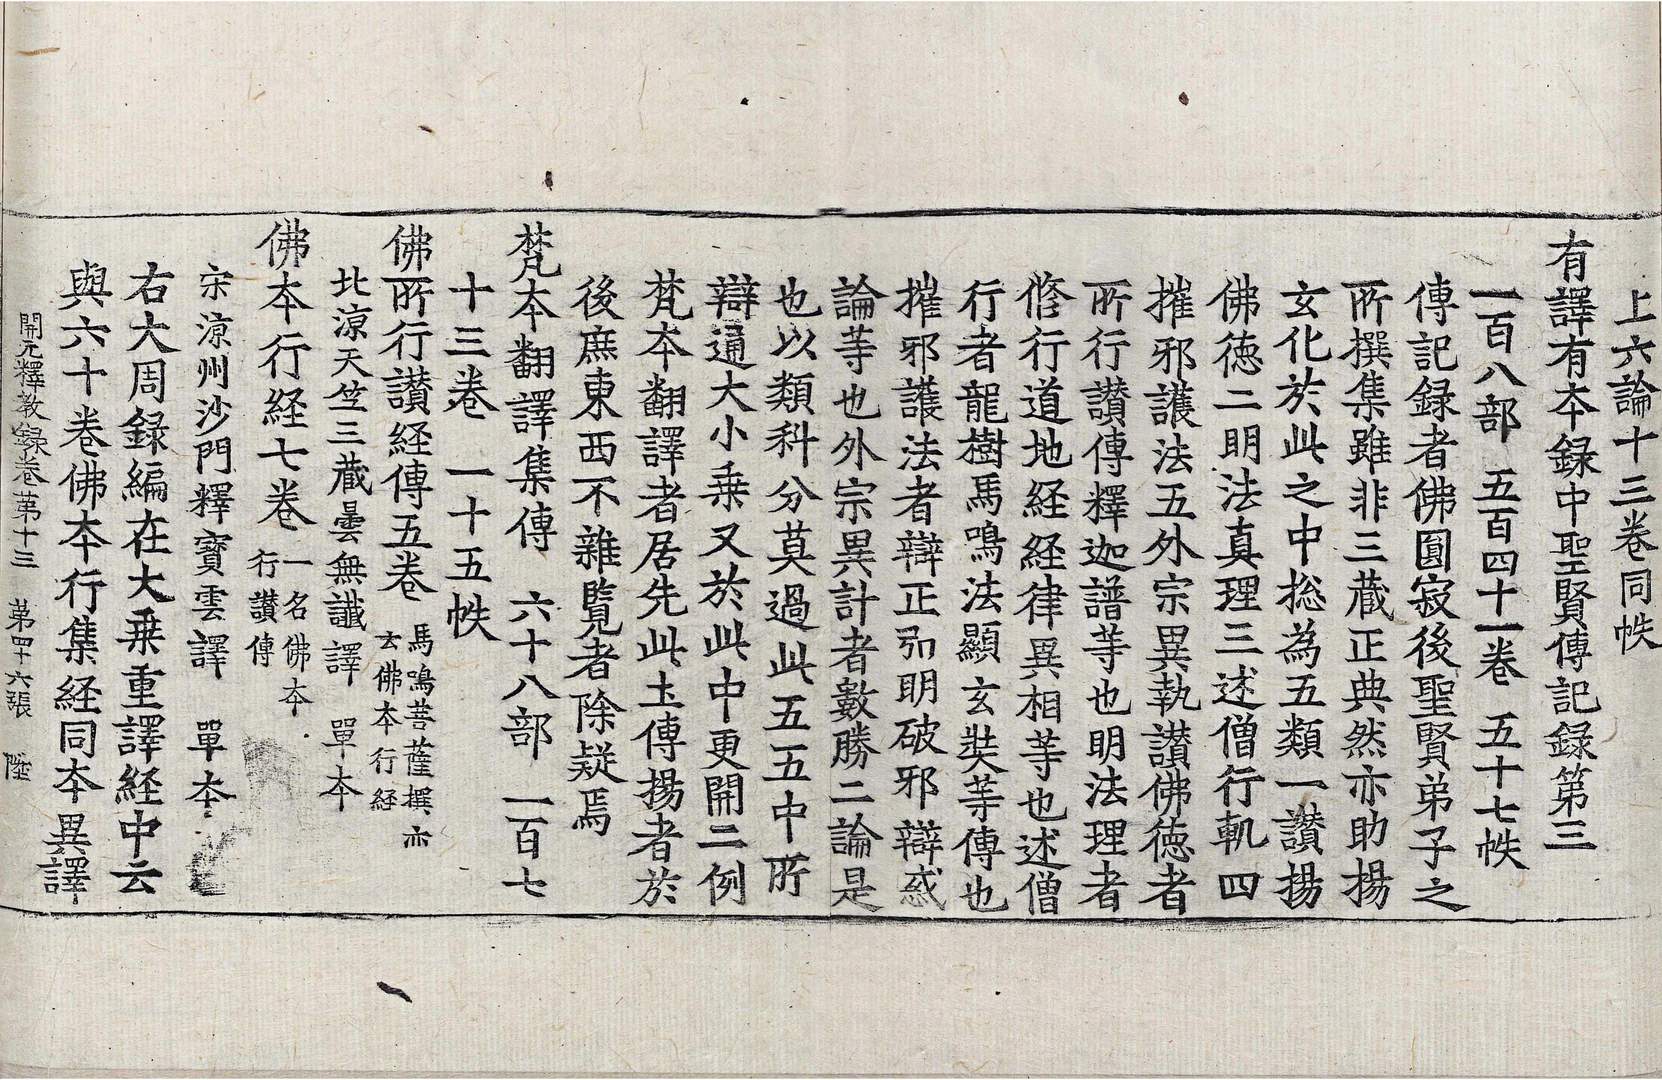 上六論十三卷同帙
有譯有本録中聖賢傳記録第三
一百八部 五百四十一卷 五十七帙
傳記録者佛圓寂後聖賢弟子之
所撰集雖非三藏正典然亦助揚
玄化於此之中捴為五類一讃揚
佛徳二明法真理三述僧行軌四
摧邪護法五外宗異執讃佛徳者
所行讃傳釋迦譜等也明法理者
脩行道地経経律異相等也述僧
行者龍樹馬鳴法顯玄奘等傳也
摧邪護法者辯正弘明破邪辯惑
論等也外宗異計者數勝二論是
也以類科分莫過此五五中所
辯通大小乗又於此中更開二例
梵本翻譯者居先此土傳揚者於
後庶東西不雜覧者除疑焉
梵本翻譯集傳 六十八部 一百七
十三卷 一十五帙
佛所行讃経傳五卷 馬鳴菩薩撰亦
云佛本行経
北涼天竺三藏曇無讖譯 單本
佛本行経七卷 一名佛本
行讃傳
宋涼州沙門釋寶雲譯 單本
右大周録編在大乗重譯経中云
與六十卷佛本行集経同本異譯
開元釋教録卷苐十三 第四十六張 陞